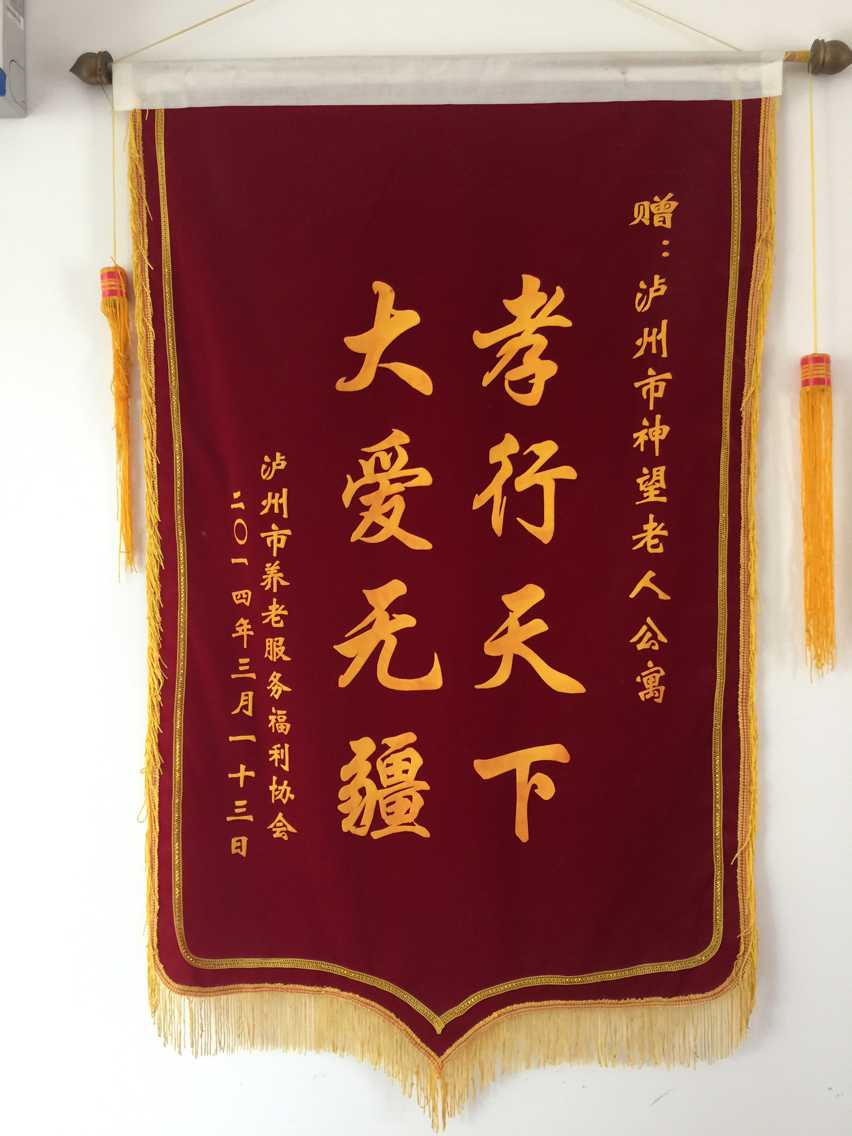 赠：泸州市神望老人公寓
孝行天下
大爱无疆
泸州市养老服务福利协会
二〇一四年三月一十三日